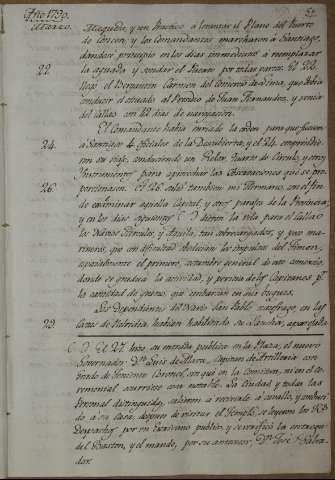 Año 1790.
Marzo.
Maqueda, y un Practico à levantar el Plano del Puerto
de Concon, y los Comandantes marcharon à Santiago,
dandose principio en los dias inmediatos à reemplazar
la aguada, y sondar el Puerto por todas partes. El 22
22.
llegó el Bergantin Carmen del Comercio de Lima, que debia
conducir el situado al Presidio de Juan Fernandez, y venia
del Callao con 42 dias de navegacion.
El Comandante havia enviado la orden para que fuesen
24.
à Santiago 4 oficiales de la Descubierta; y el 24 emprendie-
ron su viaje conduciendo un Relox, Quarto de Circulo, y otros
Instrumentos para aprovechar las observaciones que se pro-
26.
porcionasen. El 26 salió tambien mi Hermano, con el fin
de examinar aquella Capital, y otros parajes de la Provincia;
y en los dias siguientes dieron la vela para el Callao
los Navios Hercules, y Aguila, tan sobrecargados, y sus ma-
rineros, que con dificultad obedecian los impulsos del timon,
especialmente el primero, costumbre general de este comercio,
donde se gradúa la actividad, y pericia de los Capitanes pr.
la cantidad de que embarcan en sus buques.
Los dependientes del Navio San Pablo naufrago en las
29.
costas de Valdivia, habian habilitado su Lancha,
El 27 hizo su entrada publica en la Plaza, el nuevo
Governador Dn. Luis de Alava, Capitan de Artilleria con
grado de Teniente Coronel, sin que en la comitiva, ni en el ce-
remonial ocurriese cosa notable. La Ciudad, y todas las
personas distinguidas, salieron à recibirlo à cavallo, y condu-
cido à su Casa despues de visitar el Templo, se leyeron los Rs.
Despachos por un Escrivano publico, y se verificó la entrega
del Baston, y el mando, por su antecesor Dn. José Salva-
dor.